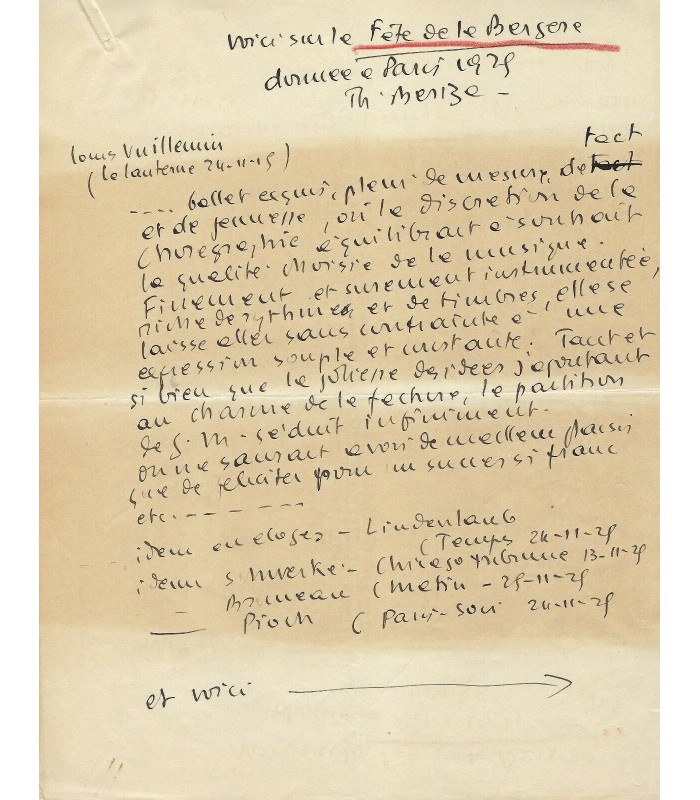 voici sur la Fête de la Bergere
donnée a Paris 1925
Th. Beriza -
Louis Vuillemin
(la lanterne 24-11-25)
tact
.... ballet exquis, plein de mesure, de tact
et de jeunesse, où la discretion de la
choregraphie équilibrait à souhait
la qualité choisie de la musique.
Finement et surement instrumentée,
riche de rythmes et de timbres, elle se
laisse aller sans contrainte à une
expression souple et constante. Tant et
si bien que la joliesse des idées s'ajoutant
au charme de la facture, la partition
de G. M. séduit infiniment.
on ne saurait avoir de meilleur plaisir
que de feliciter pour un succes si franc
etc. - - - - - -
idem en eloges - Lindenlaub
(Temps 24-11-25
idem - Chicago tribune 13-11-25
- Bruneau (Matin - 25-11-25
— Pioch (Paris-Soir 24-11-25
et voici